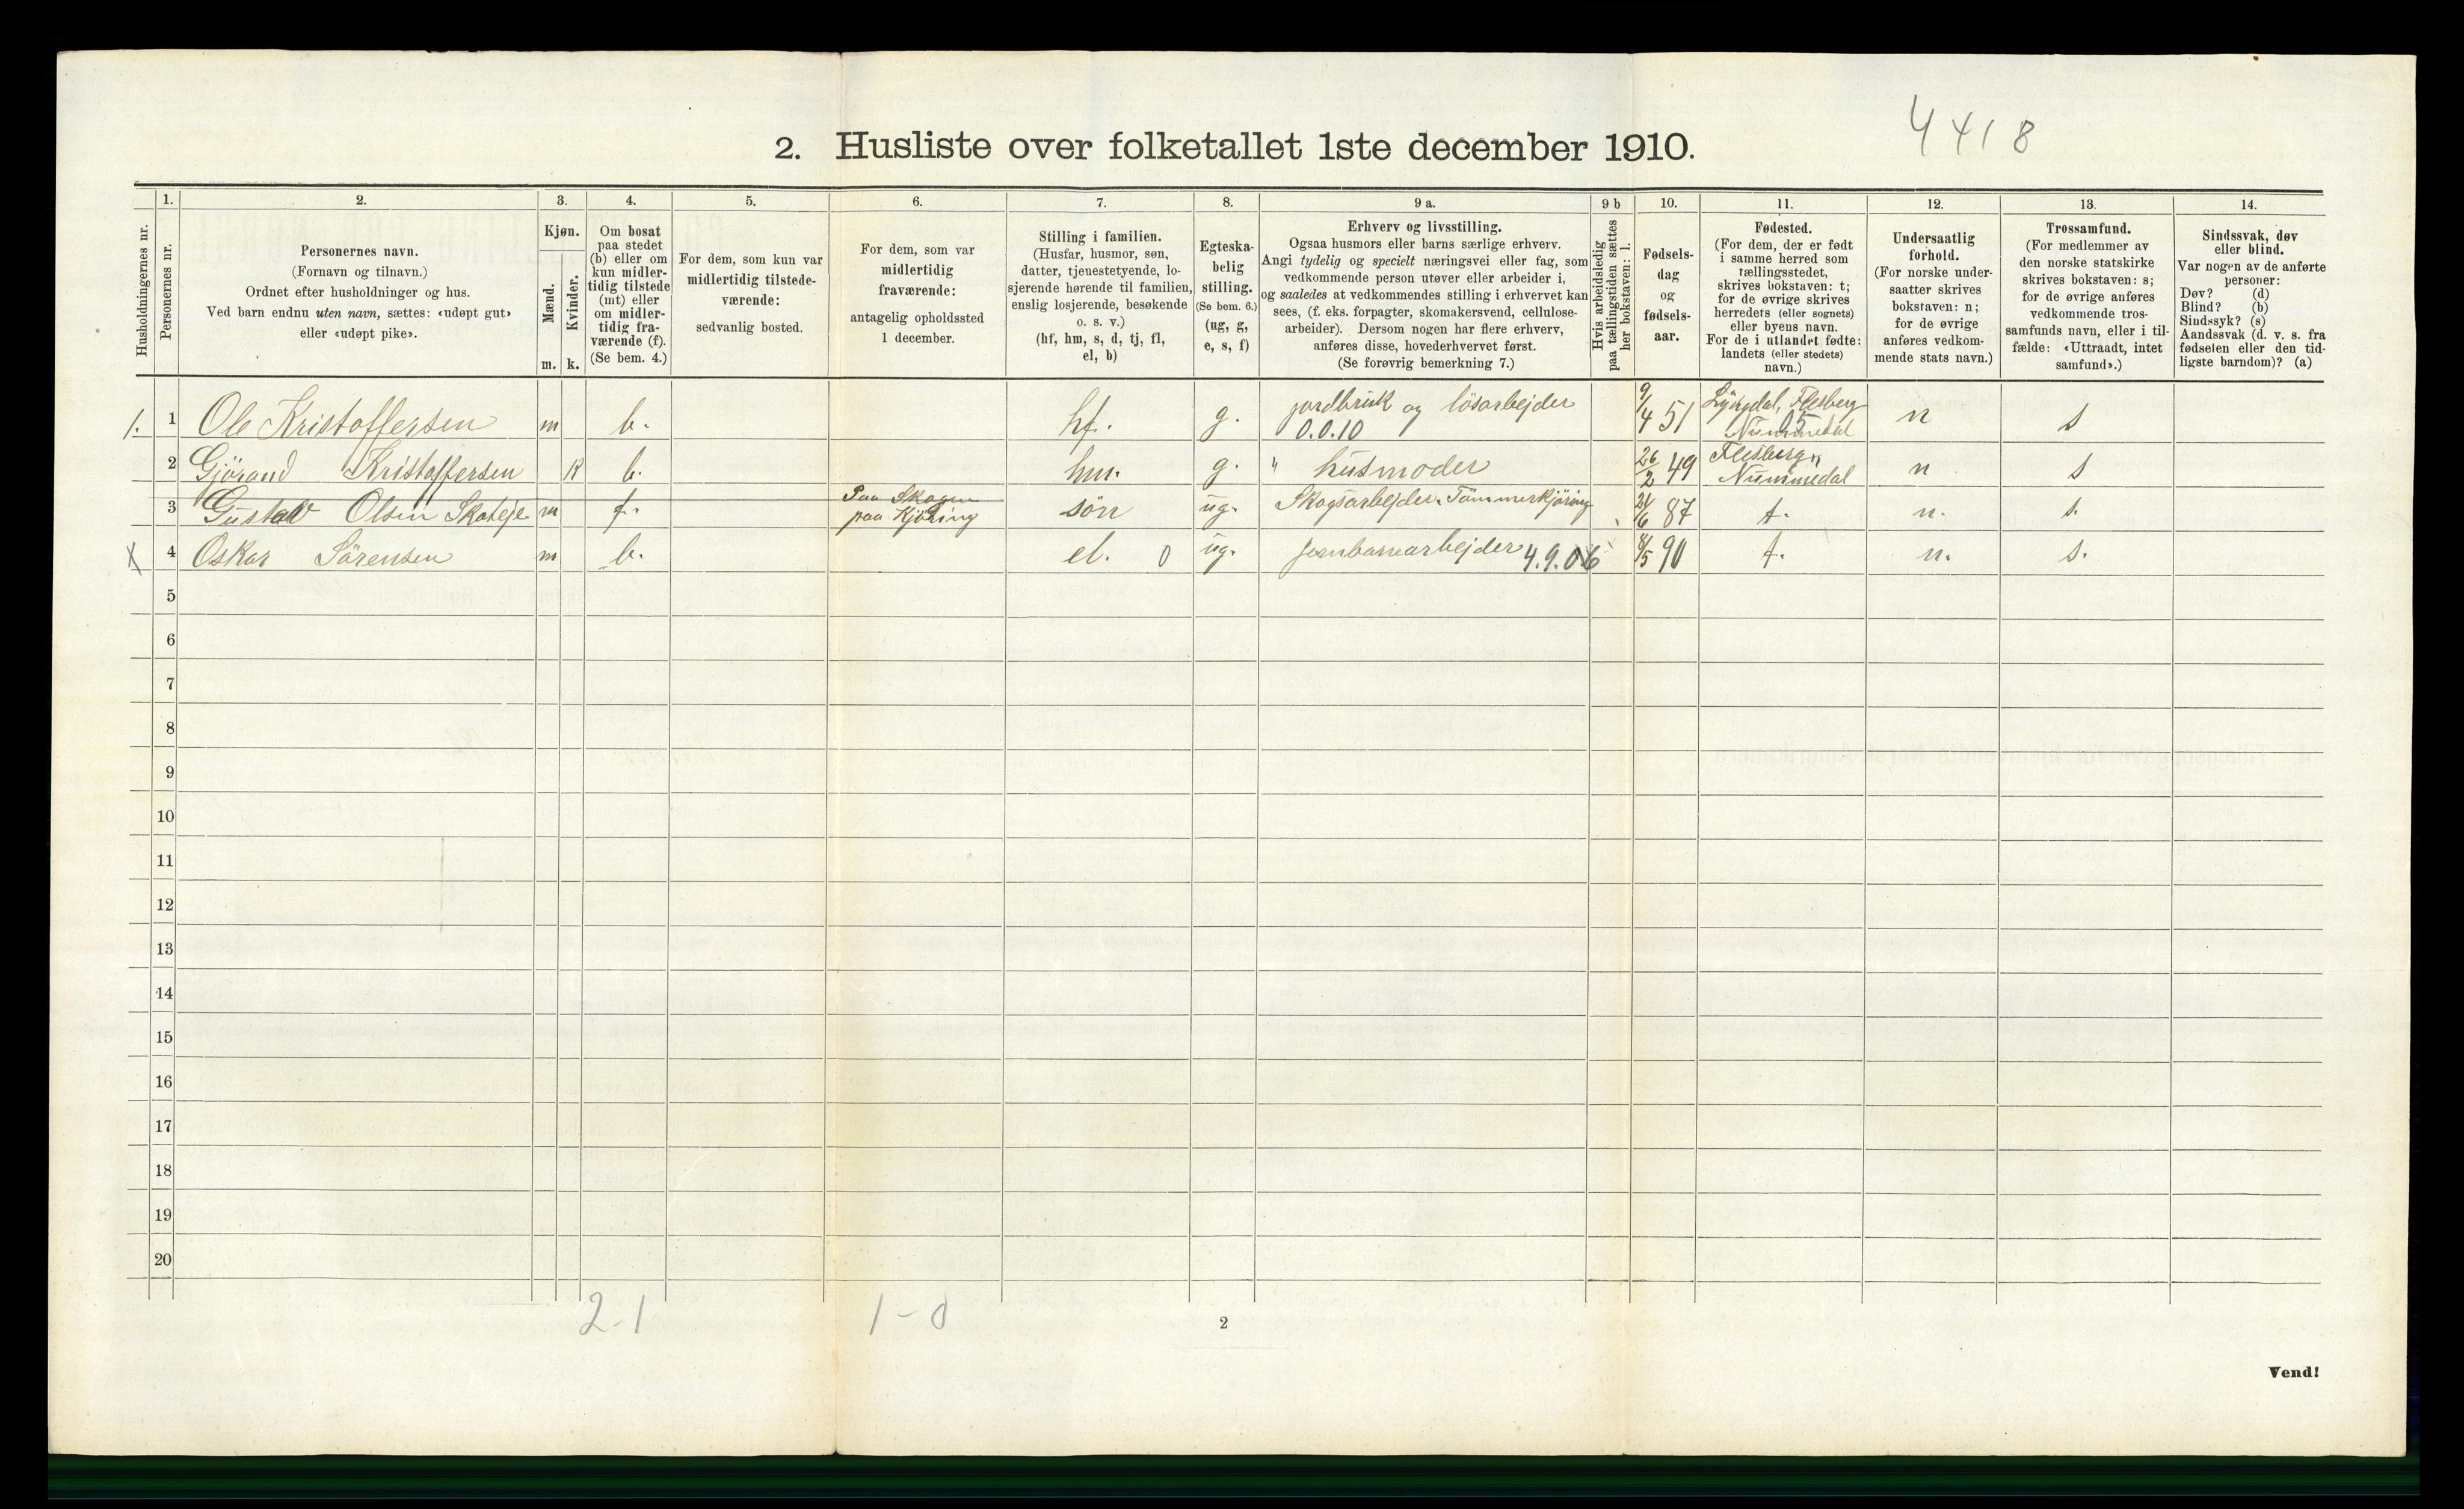 4418
2. Husliste over folketallet 1ste december 1910.
Husholdningernes nr.
1.
Personernes nr.
2.
Personernes navn.
(Fornavn og tilnavn.)
Ordnet efter husholdninger og hus.
Ved barn endnu uten navn, sættes: «udøpt gut»
eller «udøpt pike».
3.
Kjøn.
Mænd.
Kvinder.
m. k.
4.
Om bosat
paa stedet
(b) eller om
kun midler-
tidig tilstede
(mt) eller
om midler-
tidig fra-
værende (f).
(Se bem. 4.)
5.
For dem, som kun var
midlertidig tilstede-
værende:
sedvanlig bosted.
6.
For dem, som var
midlertidig
fraværende:
antagelig opholdssted
1 december.
7.
Stilling i familien.
(Husfar, husmor, søn,
datter, tjenestetyende, lo-
sjerende hørende til familien,
enslig losjerende, besøkende
o. s. v.)
(hf, hm, s, d, tj, fl,
el, b)
8.
Egteska-
belig
stilling.
(Se bem. 6.)
(ug, g,
e, s, f)
9 a.
Erhverv og livsstilling.
Ogsaa husmors eller barns særlige erhverv.
Angi tydelig og specielt næringsvei eller fag, som
vedkommende person utøver eller arbeider i,
og saaledes at vedkommendes stilling i erhvervet kan
sees, (f. eks. forpagter, skomakersvend, cellulose-
arbeider). Dersom nogen har flere erhverv,
anføres disse, hovederhvervet først.
(Se forøvrig bemerkning 7.)
9 b
Hvis arbeidsledig
paa tællingstiden sættes
her bokstaven: l.
10.
Fødsels-
dag
og
fødsels-
aar.
11.
Fødested.
(For dem, der er født
i samme herred som
tællingsstedet,
skrives bokstaven: t;
for de øvrige skrives
herredets (eller sognets)
eller byens navn.
For de i utlandet fødte:
landets (eller stedets)
navn.)
12.
Undersaatlig
forhold.
(For norske under-
saatter skrives
bokstaven: n;
for de øvrige
anføres vedkom-
mende stats navn.)
13.
Trossamfund.
(For medlemmer av
den norske statskirke
skrives bokstaven: s;
for de øvrige anføres
vedkommende tros-
samfunds navn, eller i til-
fælde: «Uttraadt, intet
samfund».)
14.
Sindssvak, døv
eller blind.
Var nogen av de anførte
personer:
Døv? (d)
Blind? (b)
Sindssyk? (s)
Aandssvak (d. v. s. fra
fødselen eller den tid-
ligste barndom)? (a)
1. 1 Ole Kristoffersen m b. hf. g. jordbruk og lösarbejder 0.0.10 9/4 51 Lyngdal, Flesberg Nummedal n s
2 Gjörand Kristoffersen K b. hm. g. " husmoder 26/2 49 Flesberg Nummedal n s
3 Gustav Olsen m f. Paa Skogen paa Kjöring sön ug. Skogsarbejder, Tömmerkjöring 24/6 87 t. n. s.
X 4 Oskar Sörensen m b. el. 0 ug. Jernbanearbejder 4.9.06 8/5 90 t. n. s.
5
6
7
8
9
10
11
12
13
14
15
16
17
18
19
20
2-1 1-0
2
Vend!